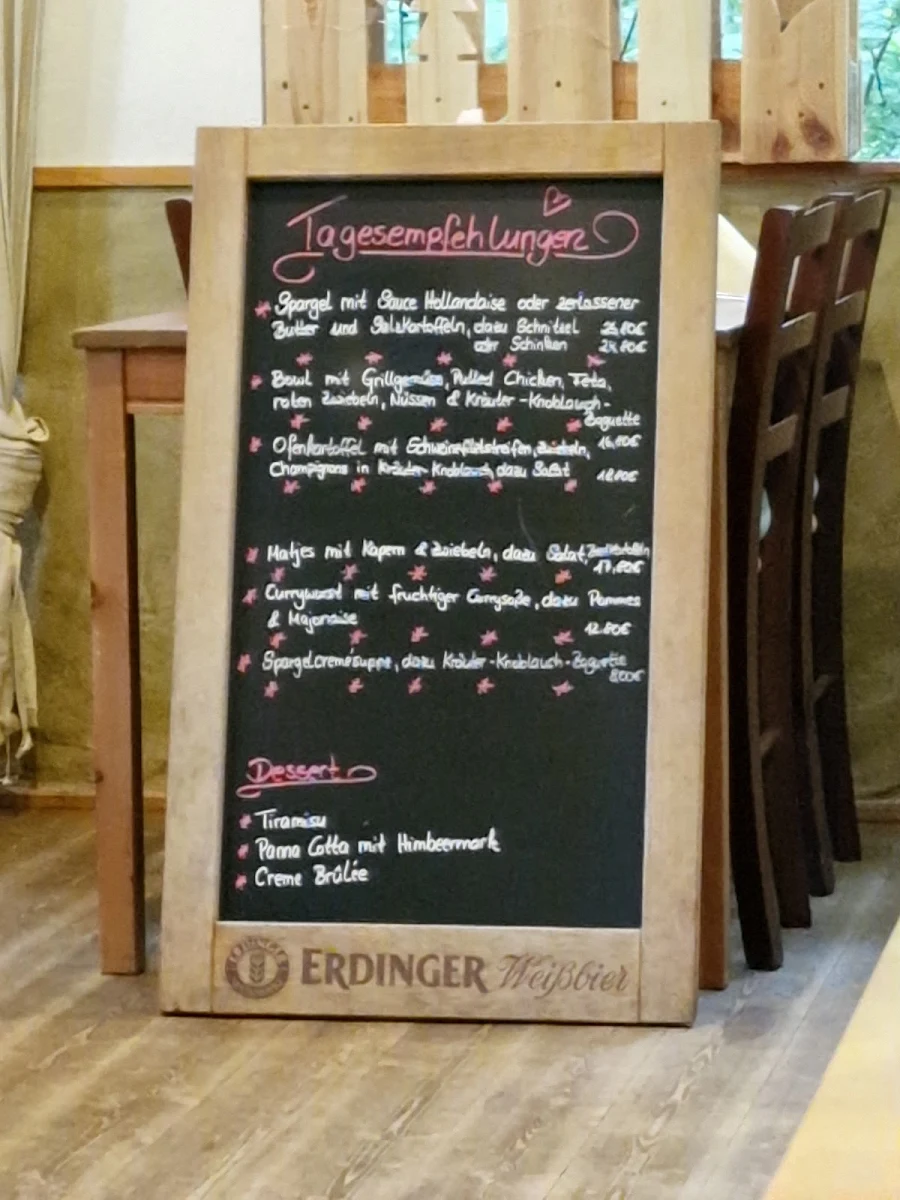 Tagesempfehlungen
Spargel mit Sauce Hollandaise oder zerlassener
Butter und Salzkartoffeln, dazu Schnitzel
oder Schinken
Bowl mit Grillgemüse, Pulled Chicken, Feta,
roten Zwiebeln, Nüssen & Kräuter-Knoblauch-
Baguette
Ofenkartoffel mit Schweinefiletstreifen, Zwiebeln,
Champignons in Kräuter-Knoblauch, dazu Salat
18.80€
Matjes mit Kapern & Zwiebeln, dazu Salat,
Currywurst mit fruchtiger Currysoße, dazu Pommes
& Majonaise
12.80€
Spargelcremésuppe, dazu Kräuter-Knoblauch-Baguette
8,00€
Dessert
Tiramisu
Panna Cotta mit Himbeermark
Creme Brûlée
ERDINGER Weißbier